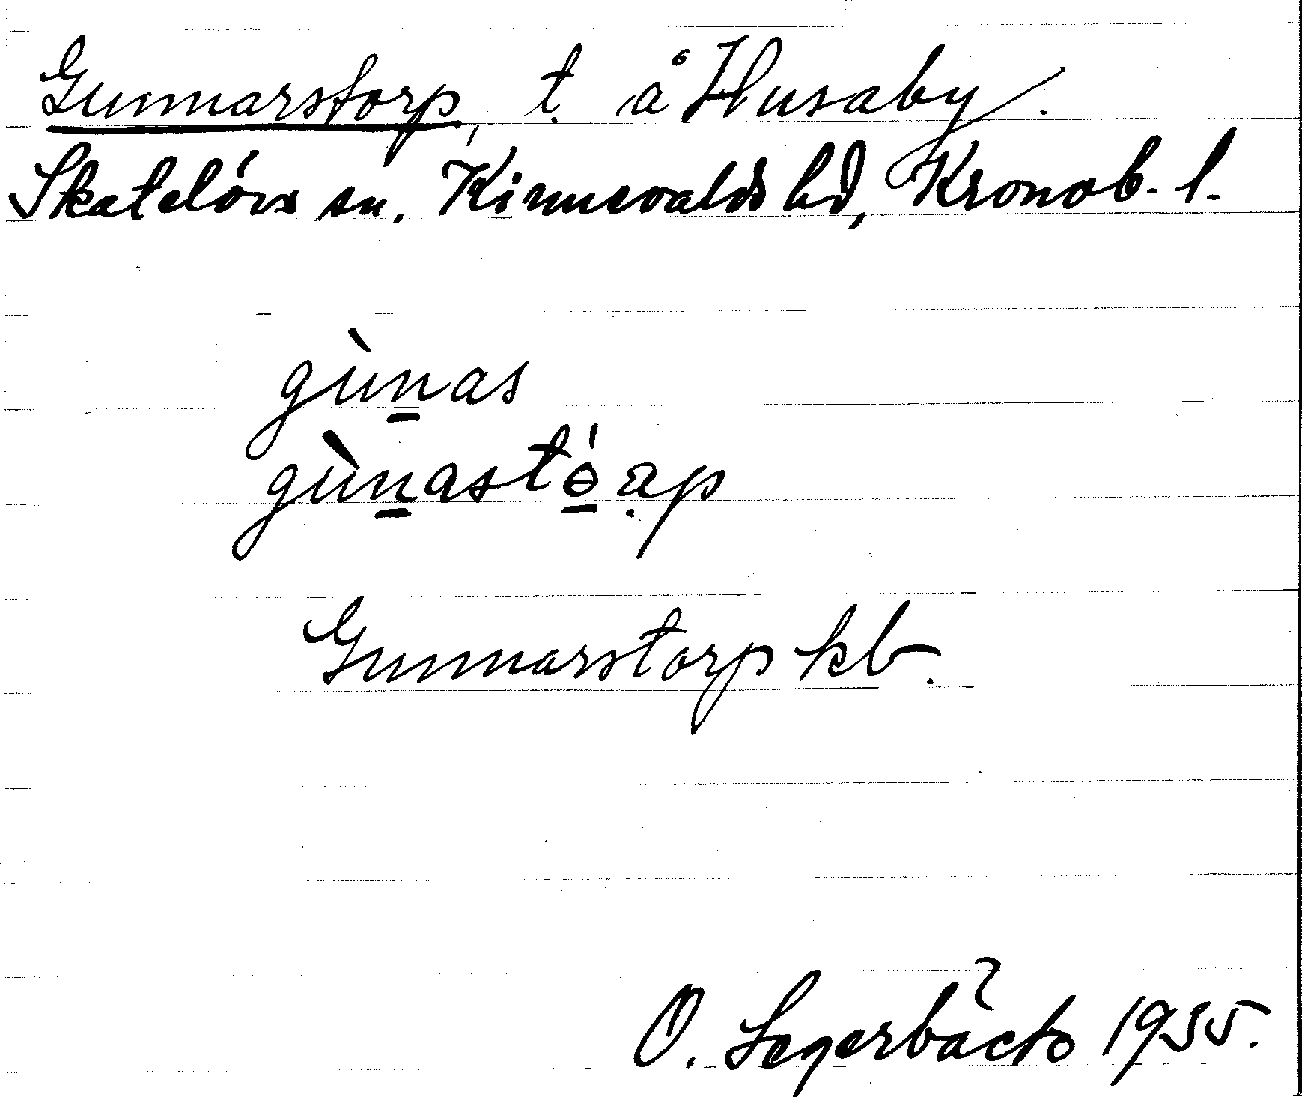 Gunnarstorp, t. å Husaby.
Skatelövs sn. Kinnevalds hd, Kronob. l.
gùn̲as
gùn̲astó̲rp
Gunnarstorp kb.
O. Segerbäck 1935.